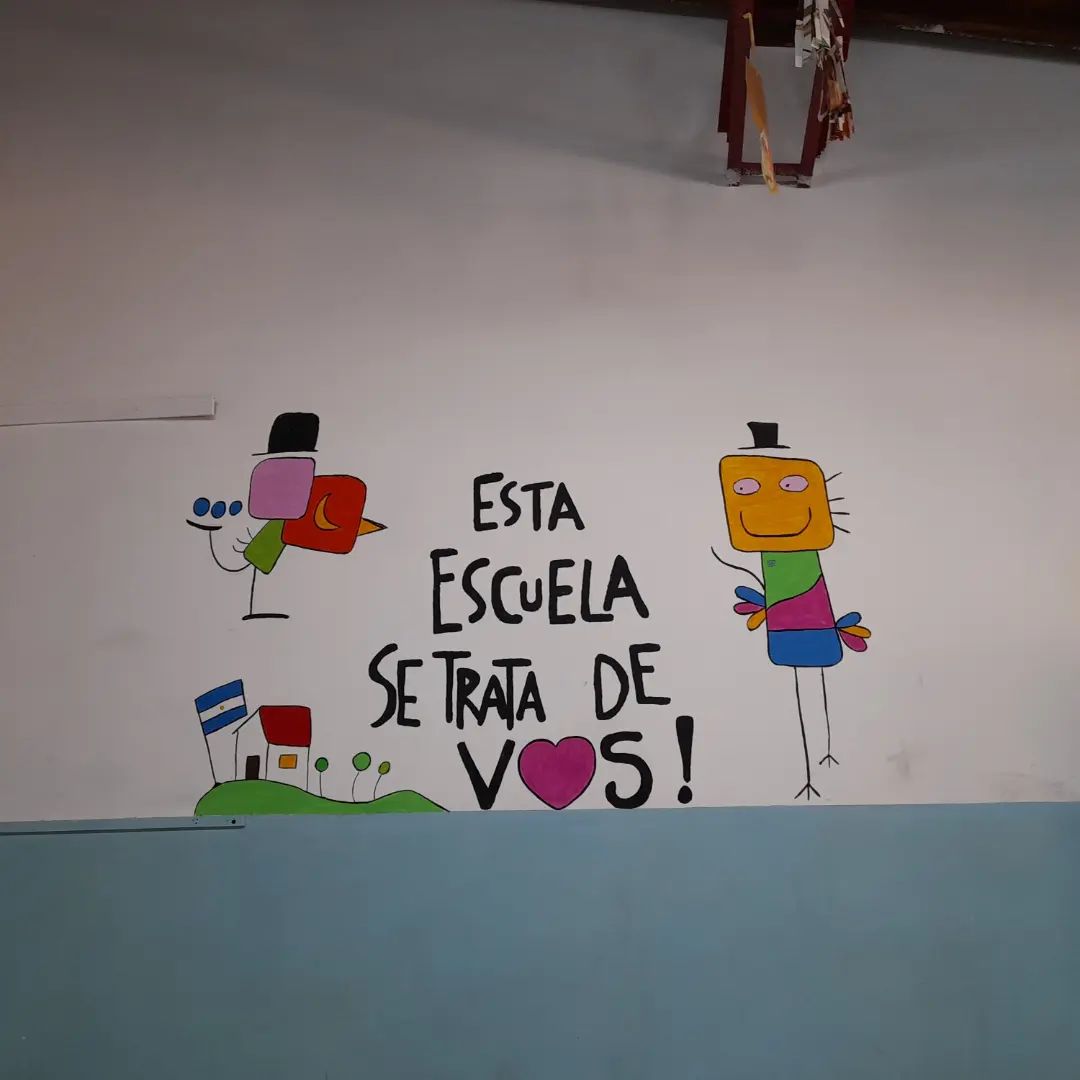 ESTA
ESCUELA
SE TRATA DE
VOS!